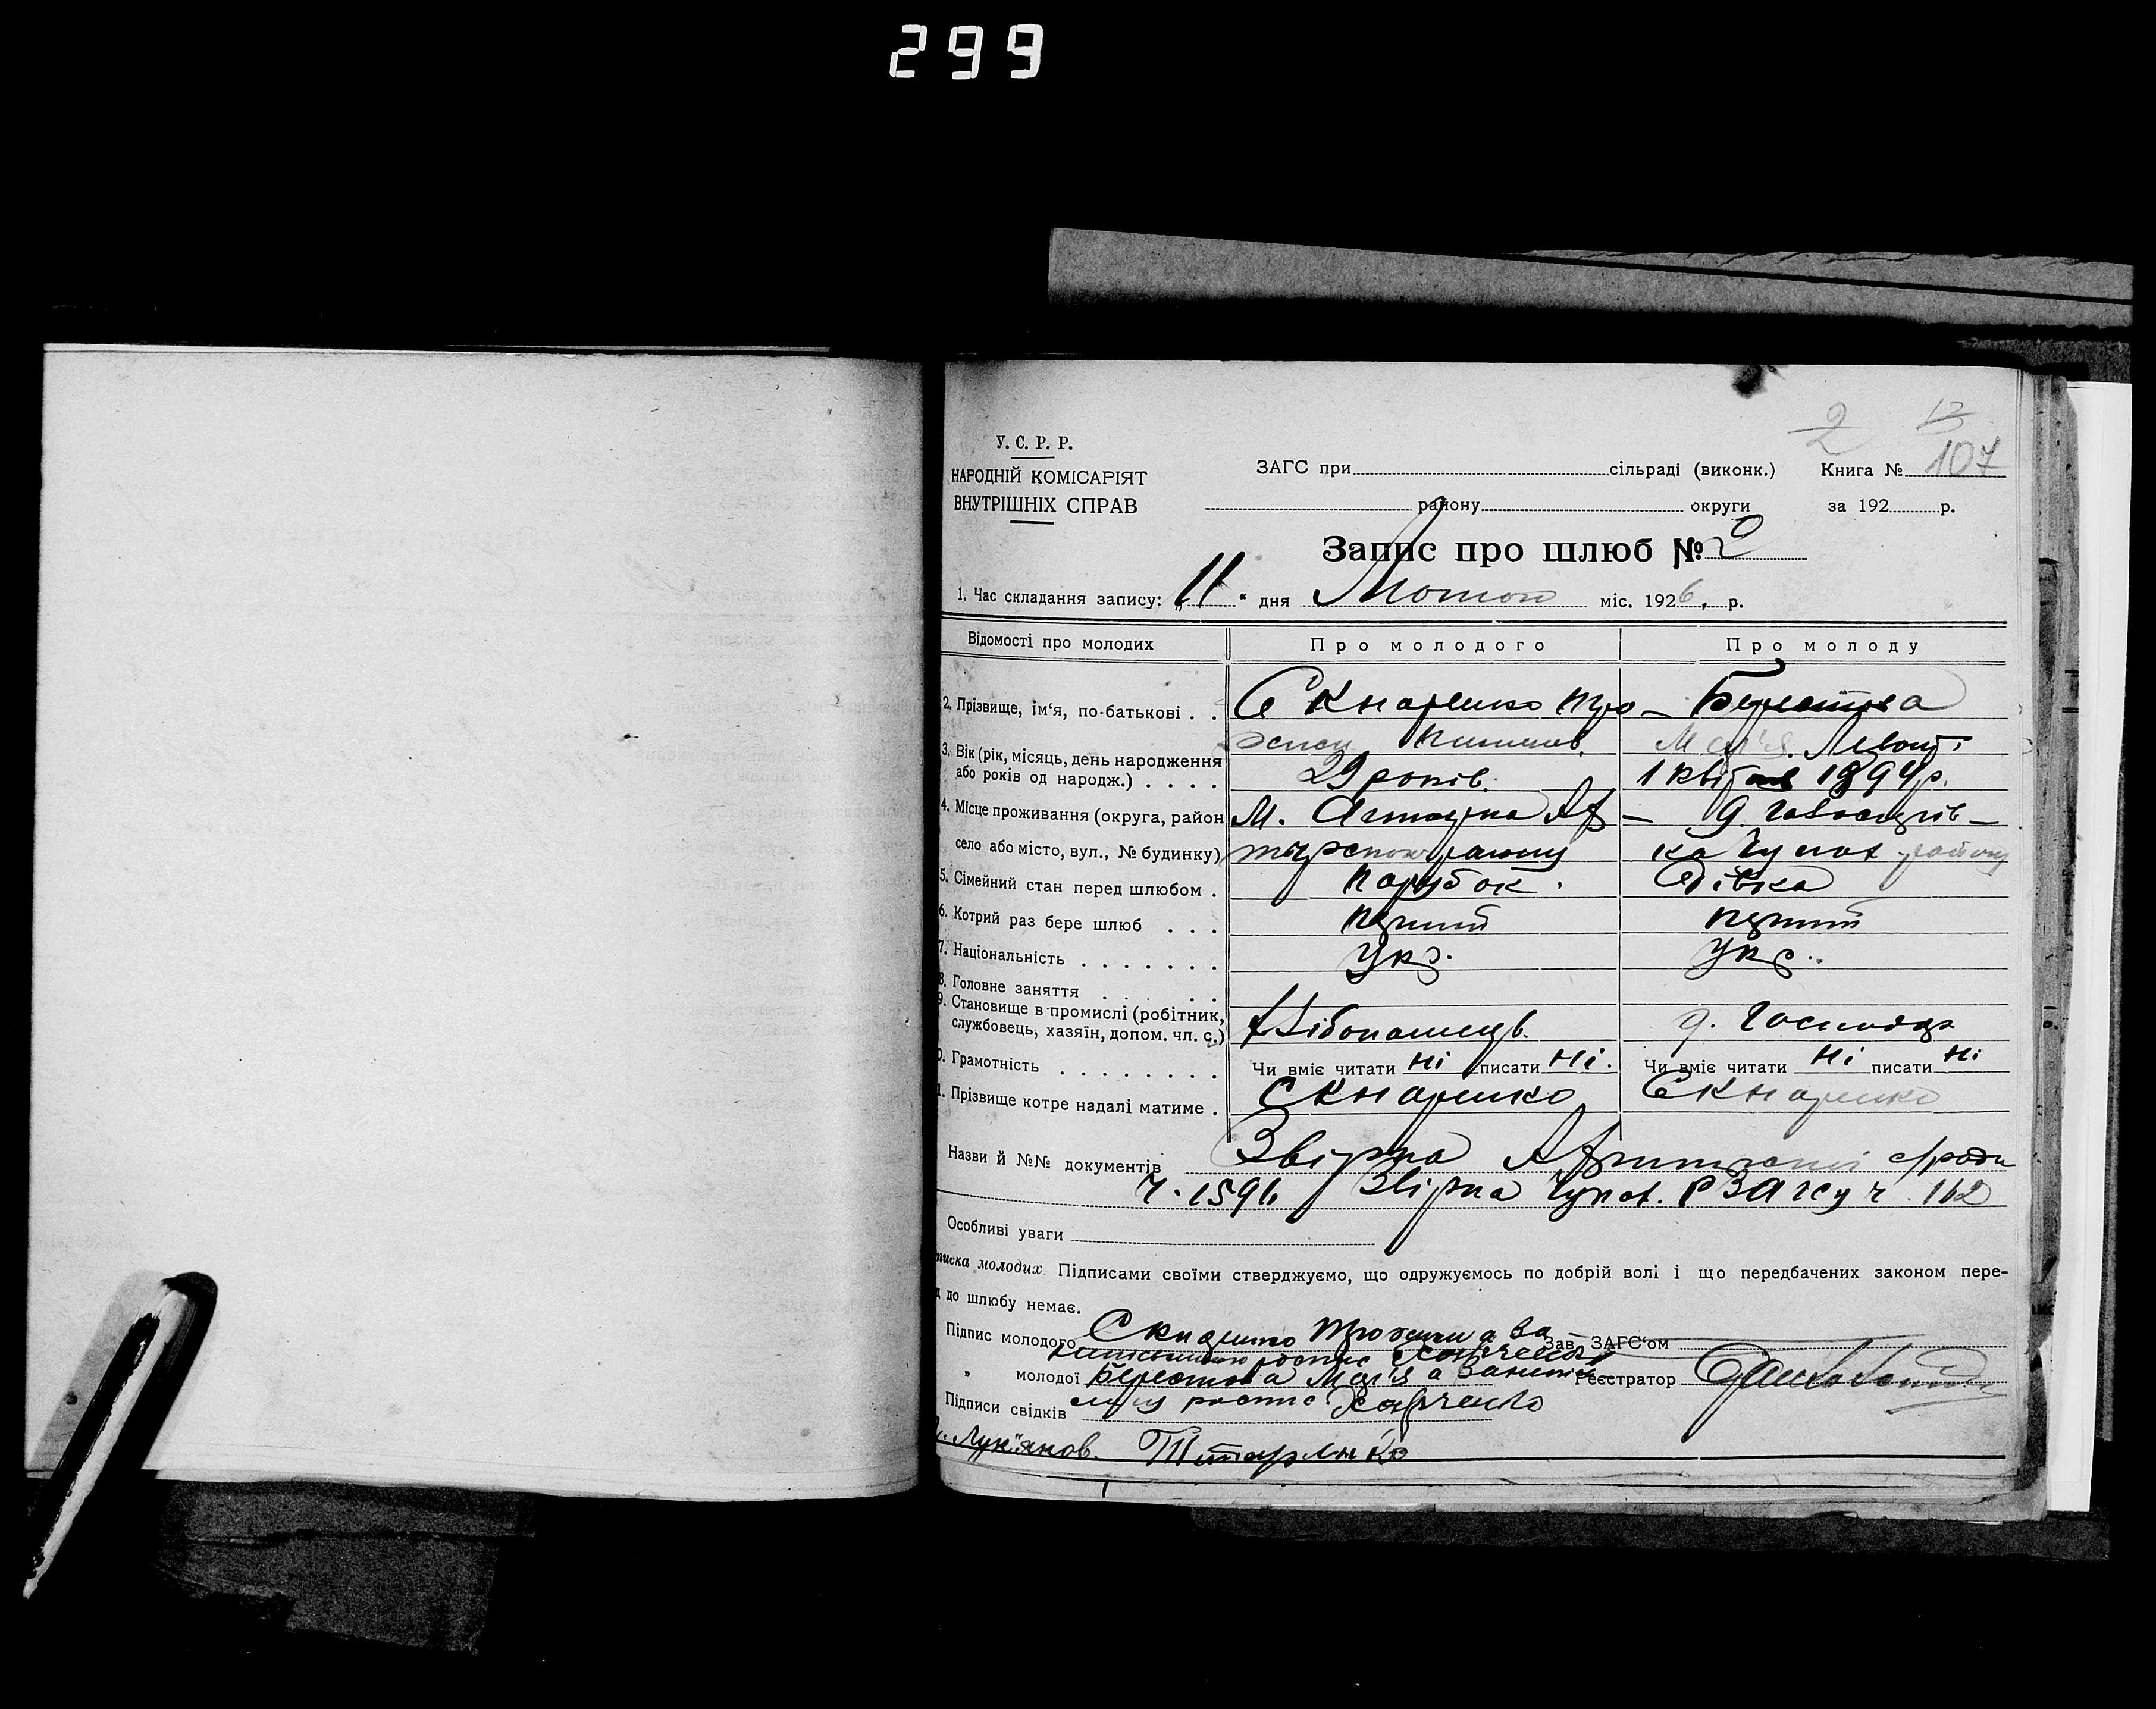 299
2 13
У. С. Р. Р.
НАРОДНІЙ КОМІСАРІЯТ
ВНУТРІШНІХ СПРАВ
ЗАГС при сільраді (виконк.) Книга № 107
району округи за 192 р.
Запис про шлюб № 2
1. Час складання запису: „11" дня Лютого міс. 1926, р.
Відомості про молодих Про молодого Про молоду
2. Прізвище, ім'я, по-батькові . . Скнаренко Тро- Берестова
Марія Левонт.
3. Вік (рік, місяць, день народження
або років од народж.) . . . . 29 років. 1 квітня 1894 р.
4. Місце проживання (округа, район М.
село або місто, вул., № будинку) району ка Чупах району
5. Сімейний стан перед шлюбом . парубок. Дівка
6. Котрий раз бере шлюб . . . перший перший
7. Національність . . . . . . . Укр. Укр..
8. Головне заняття . . . . . .
9. Становище в промислі (робітник,
службовець, хазяїн, допом. чл. с.) Хлібопашець. д. господар
0. Грамотність . . . . . . . . Чи вміє читати Ні писати Ні. Чи вміє читати Ні писати Ні
1. Прізвище котре надалі матиме . Скнаренко Скнаренко
Назви й №№ документів Звірка с/ради
ч. 1596 Звірка Чупах. РЗАГСу ч. 162
Особливі уваги
писка молодих. Підписами своїми стверджуємо, що одружуємось по добрій волі і що передбачених законом пере-
д до шлюбу немає.
Підпис молодого Скнаренко а за Зав. ЗАГС'ом
роспис Харченко
„ молодої Берестова Марія а Реєстратор
Підписи свідків роспис Харченко
Лук"янов. Титаренко